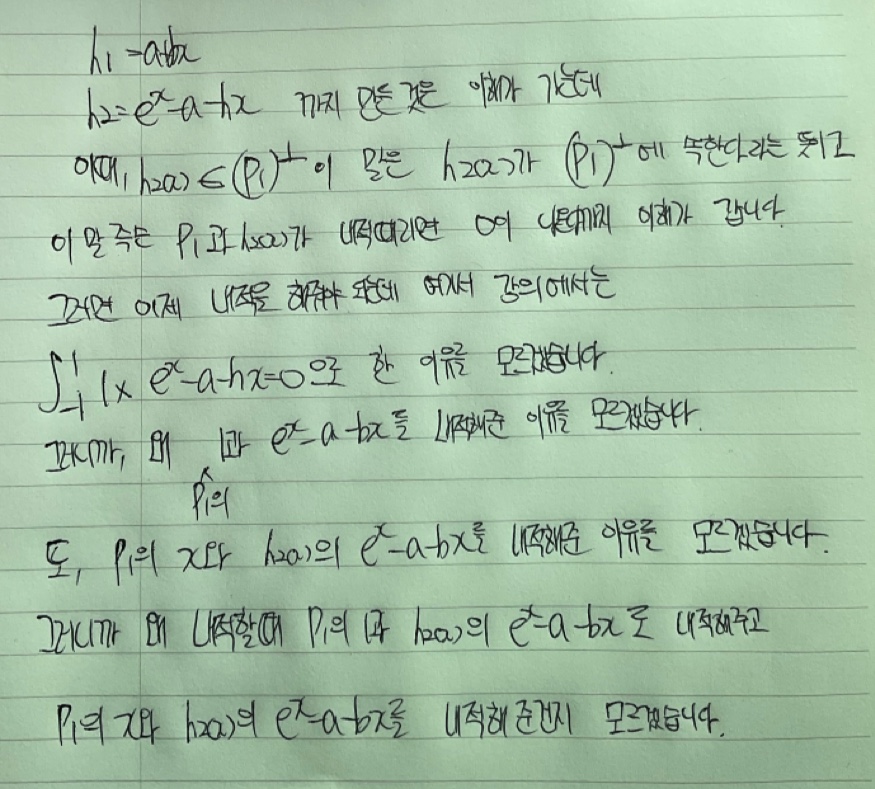 h₁=a+bx
h₂=eˣ-a-bx 까지 만든 것은 이해가 가는데
이때, h₂(x)∈(P₁)^⊥ 이 말은 h₂(x)가 (P₁)^⊥에 속한다라는 뜻이고
이 말 즉슨 P₁과 h₂(x)가 내적때리면 0이 나온다까지 이해가 갑니다.
그러면 이제 내적을 해줘야 되는데 여기서 강의에서는
∫₋₁¹ 1× eˣ-a-bx=0으로 한 이유를 모르겠습니다.
그러니까, 왜 1과 eˣ-a-bx를 내적해준 이유를 모르겠습니다.
P₁의
또, P₁의 x와 h₂(x)의 eˣ-a-bx를 내적해준 이유를 모르겠습니다.
그러니까 왜 내적할때 P₁의 1과 h₂(x)의 eˣ-a-bx로 내적해주고
P₁의 x와 h₂(x)의 eˣ-a-bx를 내적해 준건지 모르겠습니다.